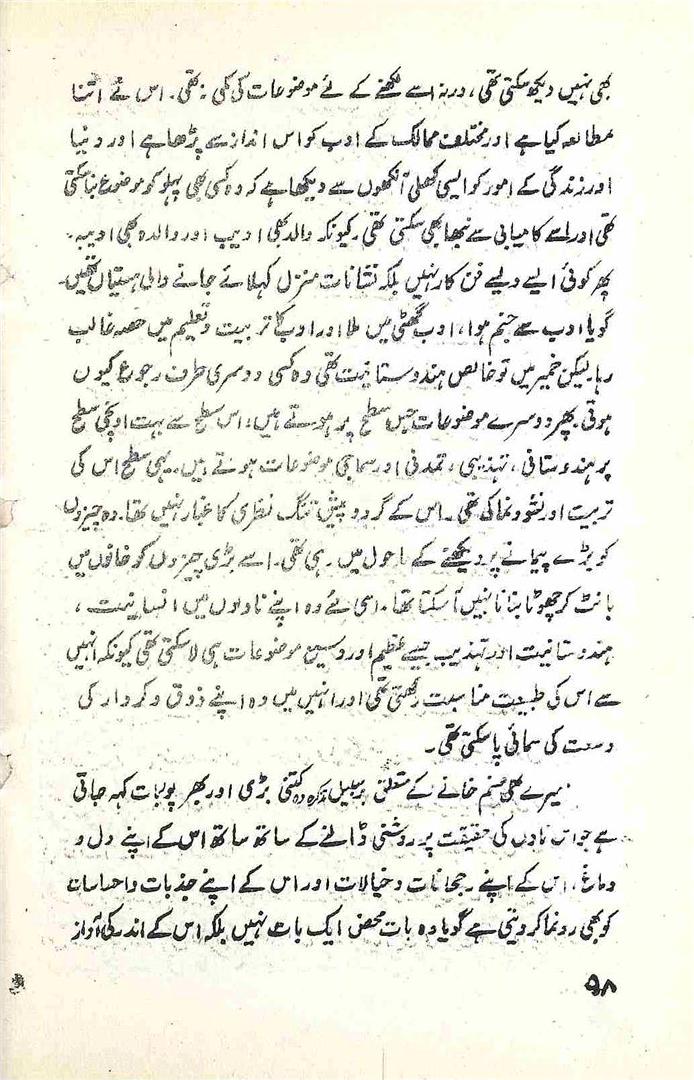 بھی نہیں دیکھ سکتی تھی، ورنہ اسے لکھنے کے لئے موضوعات کی کمی نہ تھی۔ اس نے اتنا
مطالعہ کیا ہے اور مختلف ممالک کے ادب کو اس انداز سے پڑھا ہے اور دنیا
اور زندگی کے امور کو ایسی کھلی آنکھوں سے دیکھا ہے کہ وہ کسی بھی پہلو کو موضوع بنا سکتی
تھی اور اسے کامیابی سے نبھا بھی سکتی تھی۔ کیونکہ والد بھی ادیب اور والدہ بھی ادیبہ۔
پھر کوئی ایسے ویسے فن کار نہیں بلکہ نشانات منزل کہلائے جانے والی ہستیاں تھیں۔
گویا ادب سے جنم ہوا، ادب گھٹی میں ملا اور ادب کا تربیت و تعلیم میں حصہ غالب
رہا۔ لیکن خمیر میں تو خالص ہندوستانیت تھی وہ کسی دوسری طرف رجوع کیوں
ہوتی۔ پھر دوسرے موضوعات جس سطح پر ہوتے ہیں، اس سطح سے بہت اونچی سطح
پر ہندوستانی، تہذیبی، تمدنی اور سماجی موضوعات ہوتے ہیں۔ یہی سطح اس کی
تربیت اور نشو و نما کی تھی۔ اس کے گرد و پیش تنگ نظری کا غبار نہیں تھا۔ وہ چیزوں
کو بڑے پیمانے پر دیکھنے کے ماحول میں رہی تھی۔ اسے بڑی چیزوں کو خانوں میں
بانٹ کر چھوٹا بنانا نہیں آ سکتا تھا۔ اسی لئے وہ اپنے ناولوں میں انسانیت،
ہندوستانیت اور تہذیب جیسے عظیم اور وسیع موضوعات ہی لا سکتی تھی کیونکہ انہیں
سے اس کی طبیعت مناسبت رکھتی تھی اور انہیں میں وہ اپنے ذوق و کردار کی
وسعت کی سمائی پا سکتی تھی۔
میرے بھی صنم خانے کے متعلق برسبیل تذکرہ وہ کتنی بڑی اور بھر پور بات کہہ جاتی
ہے جو اس ناول کی حقیقت پر روشنی ڈالنے کے ساتھ ساتھ اس کے اپنے دل و
دماغ، اس کے اپنے رجحانات و خیالات اور اس کے اپنے جذبات و احساسات
کو بھی رونما کر دیتی ہے گویا وہ بات محض ایک بات نہیں بلکہ اس کے اندر کی آواز
۵۸